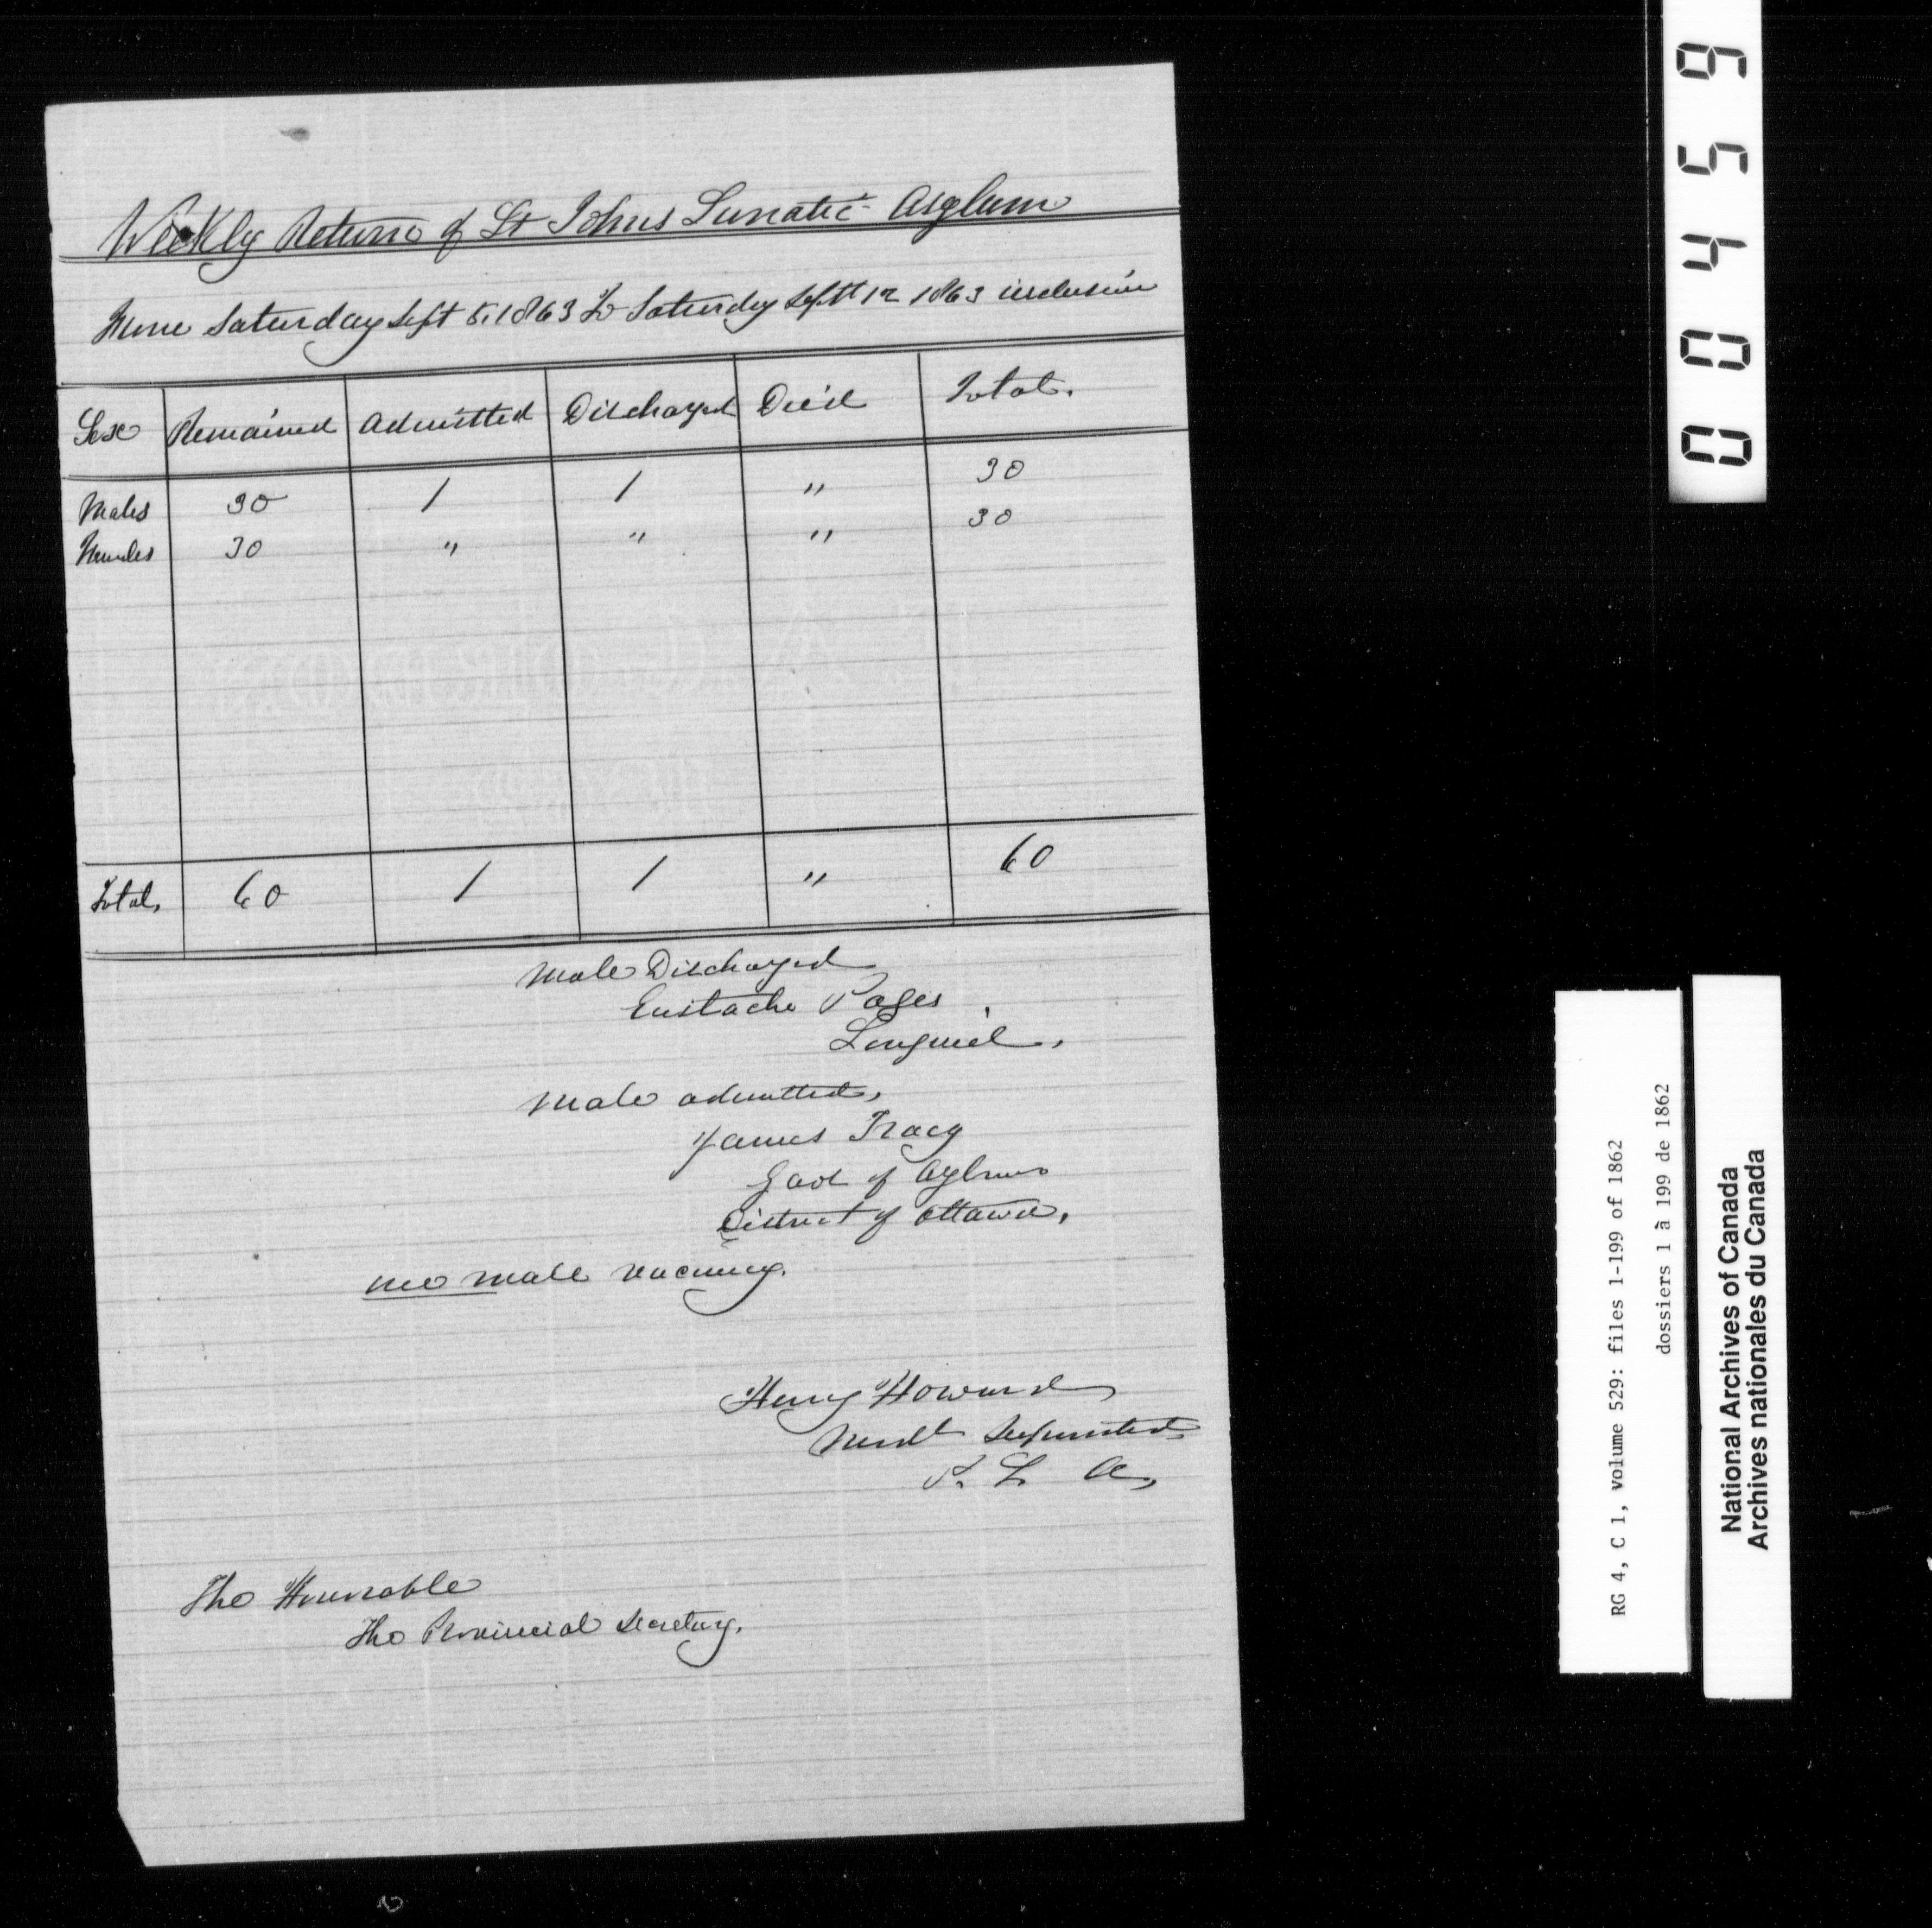 Weekly Return of St Johns Lunatic Asylum
From Saturday Sept 5. 1863 To Saturday Sept 12 1863 inclusive
Sex Remained Admitted Discharged Died Total.
Males 30 1 1 " 30
Females 30 " " " 30
Total, 60 1 1 " 60
Male Discharged
Eustache Pages,
Longueil,
Male admitted,
James Tracy
Gaol of Aylmer
District of Ottawa,
no male vacancy.
Henry Howard
Medl
L A,
The Honorable
The Provincial Secretary.
00459
RG 4, C 1, volume 529: files 1-199 of 1862
dossiers 1 à 199 de 1862
National Archives of Canada
Archives nationales du Canada